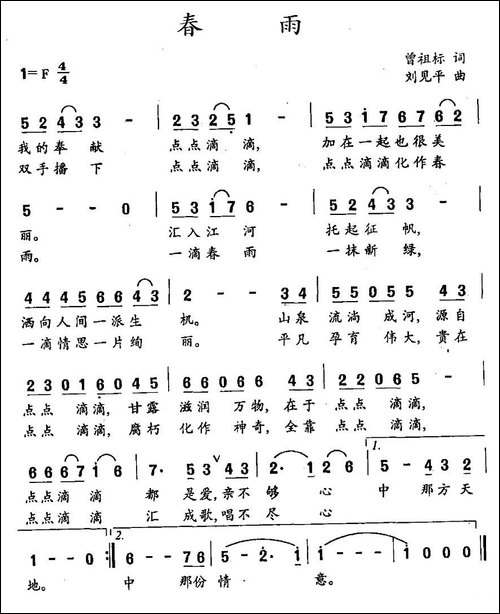 春 雨
曾祖标 词
1=F 4/4
刘见平 曲
5 2 4 3 3 - | 2 3 2 5 1 - | 5 3 1 7 6 7 6 2 |
我的奉 献 点点滴 滴, 加在一起也很美
双手播 下 点点滴 滴, 点点滴滴化作春
5 - - 0 | 5 3 1 7 6 - | 5 2 4 3 3 - |
丽。 汇入江 河 托起征 帆,
雨。 一滴春 雨 一抹新 绿,
4 4 4 5 6 6 4 3 | 2 - - 3 4 | 5 5 0 5 5 4 3 |
洒向人间一派生 机。 山泉 流淌 成河, 源自
一滴情思一片绚 丽。 平凡 孕育 伟大, 贵在
2 3 0 1 6 0 4 5 | 6 6 0 6 6 4 3 | 2 2 0 6 5 - |
点点 滴滴, 甘露 滋润 万物, 在于 点点 滴滴,
点点 滴滴, 腐朽 化作 神奇, 全靠 点点 滴滴,
1.
6 6 6 7 1 6 | 7· 5 3 ∨ 4 3 | 2· 1 2 6 | 5 - 4 3 2 |
点点滴 滴 都 是爱, 亲不 够 心 中 那方天
点点滴 滴 汇 成歌, 唱不 尽 心
2.
1 - - 0 :‖ 6 - - 7 6 | 5 - 2· 1 | 1 - - - | 1 0 0 0 ‖
地。 中 那份 情 意。